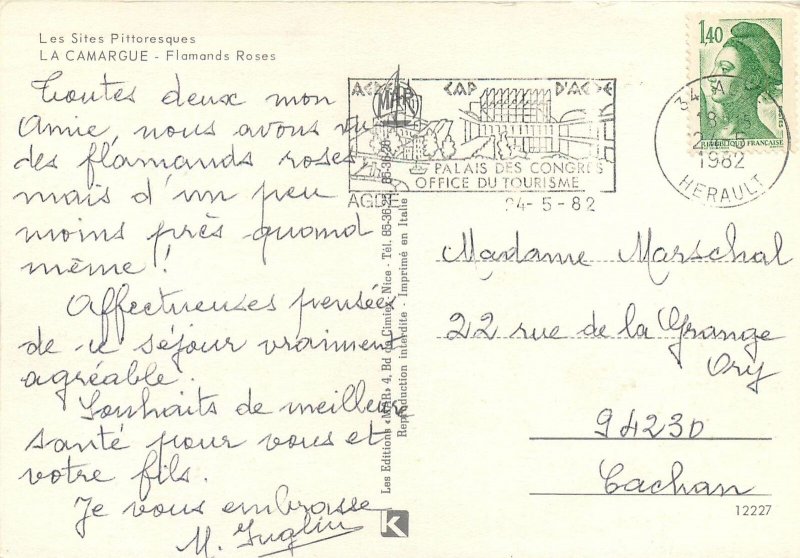 Les Sites Pittoresques
LA CAMARGUE - Flamands Roses
Toutes deux mon
Amie, nous avons vu
des flamands roses
mais d'un peu
moins près quand
même !
Affectueuses pensées
de ce séjour vraiment
agréable.
Souhaits de meilleure
santé pour vous et
votre fils.
Je vous embrasse
M.
Les Editions «MAR» 4, Bd de Cimiez Nice - Tél. 85-36-28
Reproduction interdite - Imprimé en Italie
MAR
K
CAP D'AGDE
PALAIS DES CONGRES
OFFICE DU TOURISME
AGDE
24-5-82
34
1982
HERAULT
1,40
REPUBLIQUE FRANÇAISE
Madame Marschal
22 rue de la Grange
Ory
94230
Cachan
12227